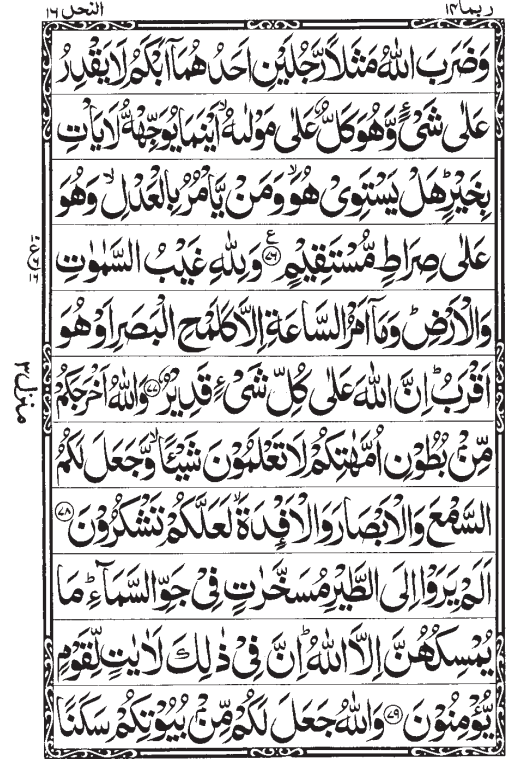 ربما ۱۴
النحل ۱۶
وَضَرَبَ اللّٰهُ مَثَلًا رَّجُلَيْنِ اَحَدُهُمَاۤ اَبْكَمُ لَا يَقْدِرُ
عَلٰى شَیْءٍ وَّهُوَ كَلٌّ عَلٰى مَوْلٰىهُ ۙ اَيْنَمَا يُوَجِّهْهُّ لَا يَاْتِ
بِخَيْرٍ ؕ هَلْ يَسْتَوِیْ هُوَ ۙ وَمَنْ يَّاْمُرُ بِالْعَدْلِ ۙ وَهُوَ
عَلٰى صِرَاطٍ مُّسْتَقِيْمٍ ﴿۷۶﴾ ع وَلِلّٰهِ غَيْبُ السَّمٰوٰتِ
وَالْاَرْضِ ؕ وَمَاۤ اَمْرُ السَّاعَةِ اِلَّا كَلَمْحِ الْبَصَرِ اَوْ هُوَ
اَقْرَبُ ؕ اِنَّ اللّٰهَ عَلٰى كُلِّ شَیْءٍ قَدِيْرٌ ﴿۷۷﴾ وَاللّٰهُ اَخْرَجَكُمْ
مِّنْۢ بُطُوْنِ اُمَّهٰتِكُمْ لَا تَعْلَمُوْنَ شَيْـًٔا ۙ وَّجَعَلَ لَكُمُ
السَّمْعَ وَالْاَبْصَارَ وَالْاَفْـِٕدَةَ ۙ لَعَلَّكُمْ تَشْكُرُوْنَ ﴿۷۸﴾
اَلَمْ يَرَوْا اِلَى الطَّيْرِ مُسَخَّرٰتٍ فِیْ جَوِّ السَّمَآءِ ؕ مَا
يُمْسِكُهُنَّ اِلَّا اللّٰهُ ؕ اِنَّ فِیْ ذٰلِكَ لَاٰيٰتٍ لِّقَوْمٍ
يُّؤْمِنُوْنَ ﴿۷۹﴾ وَاللّٰهُ جَعَلَ لَكُمْ مِّنْۢ بُيُوْتِكُمْ سَكَنًا
منزل ۳